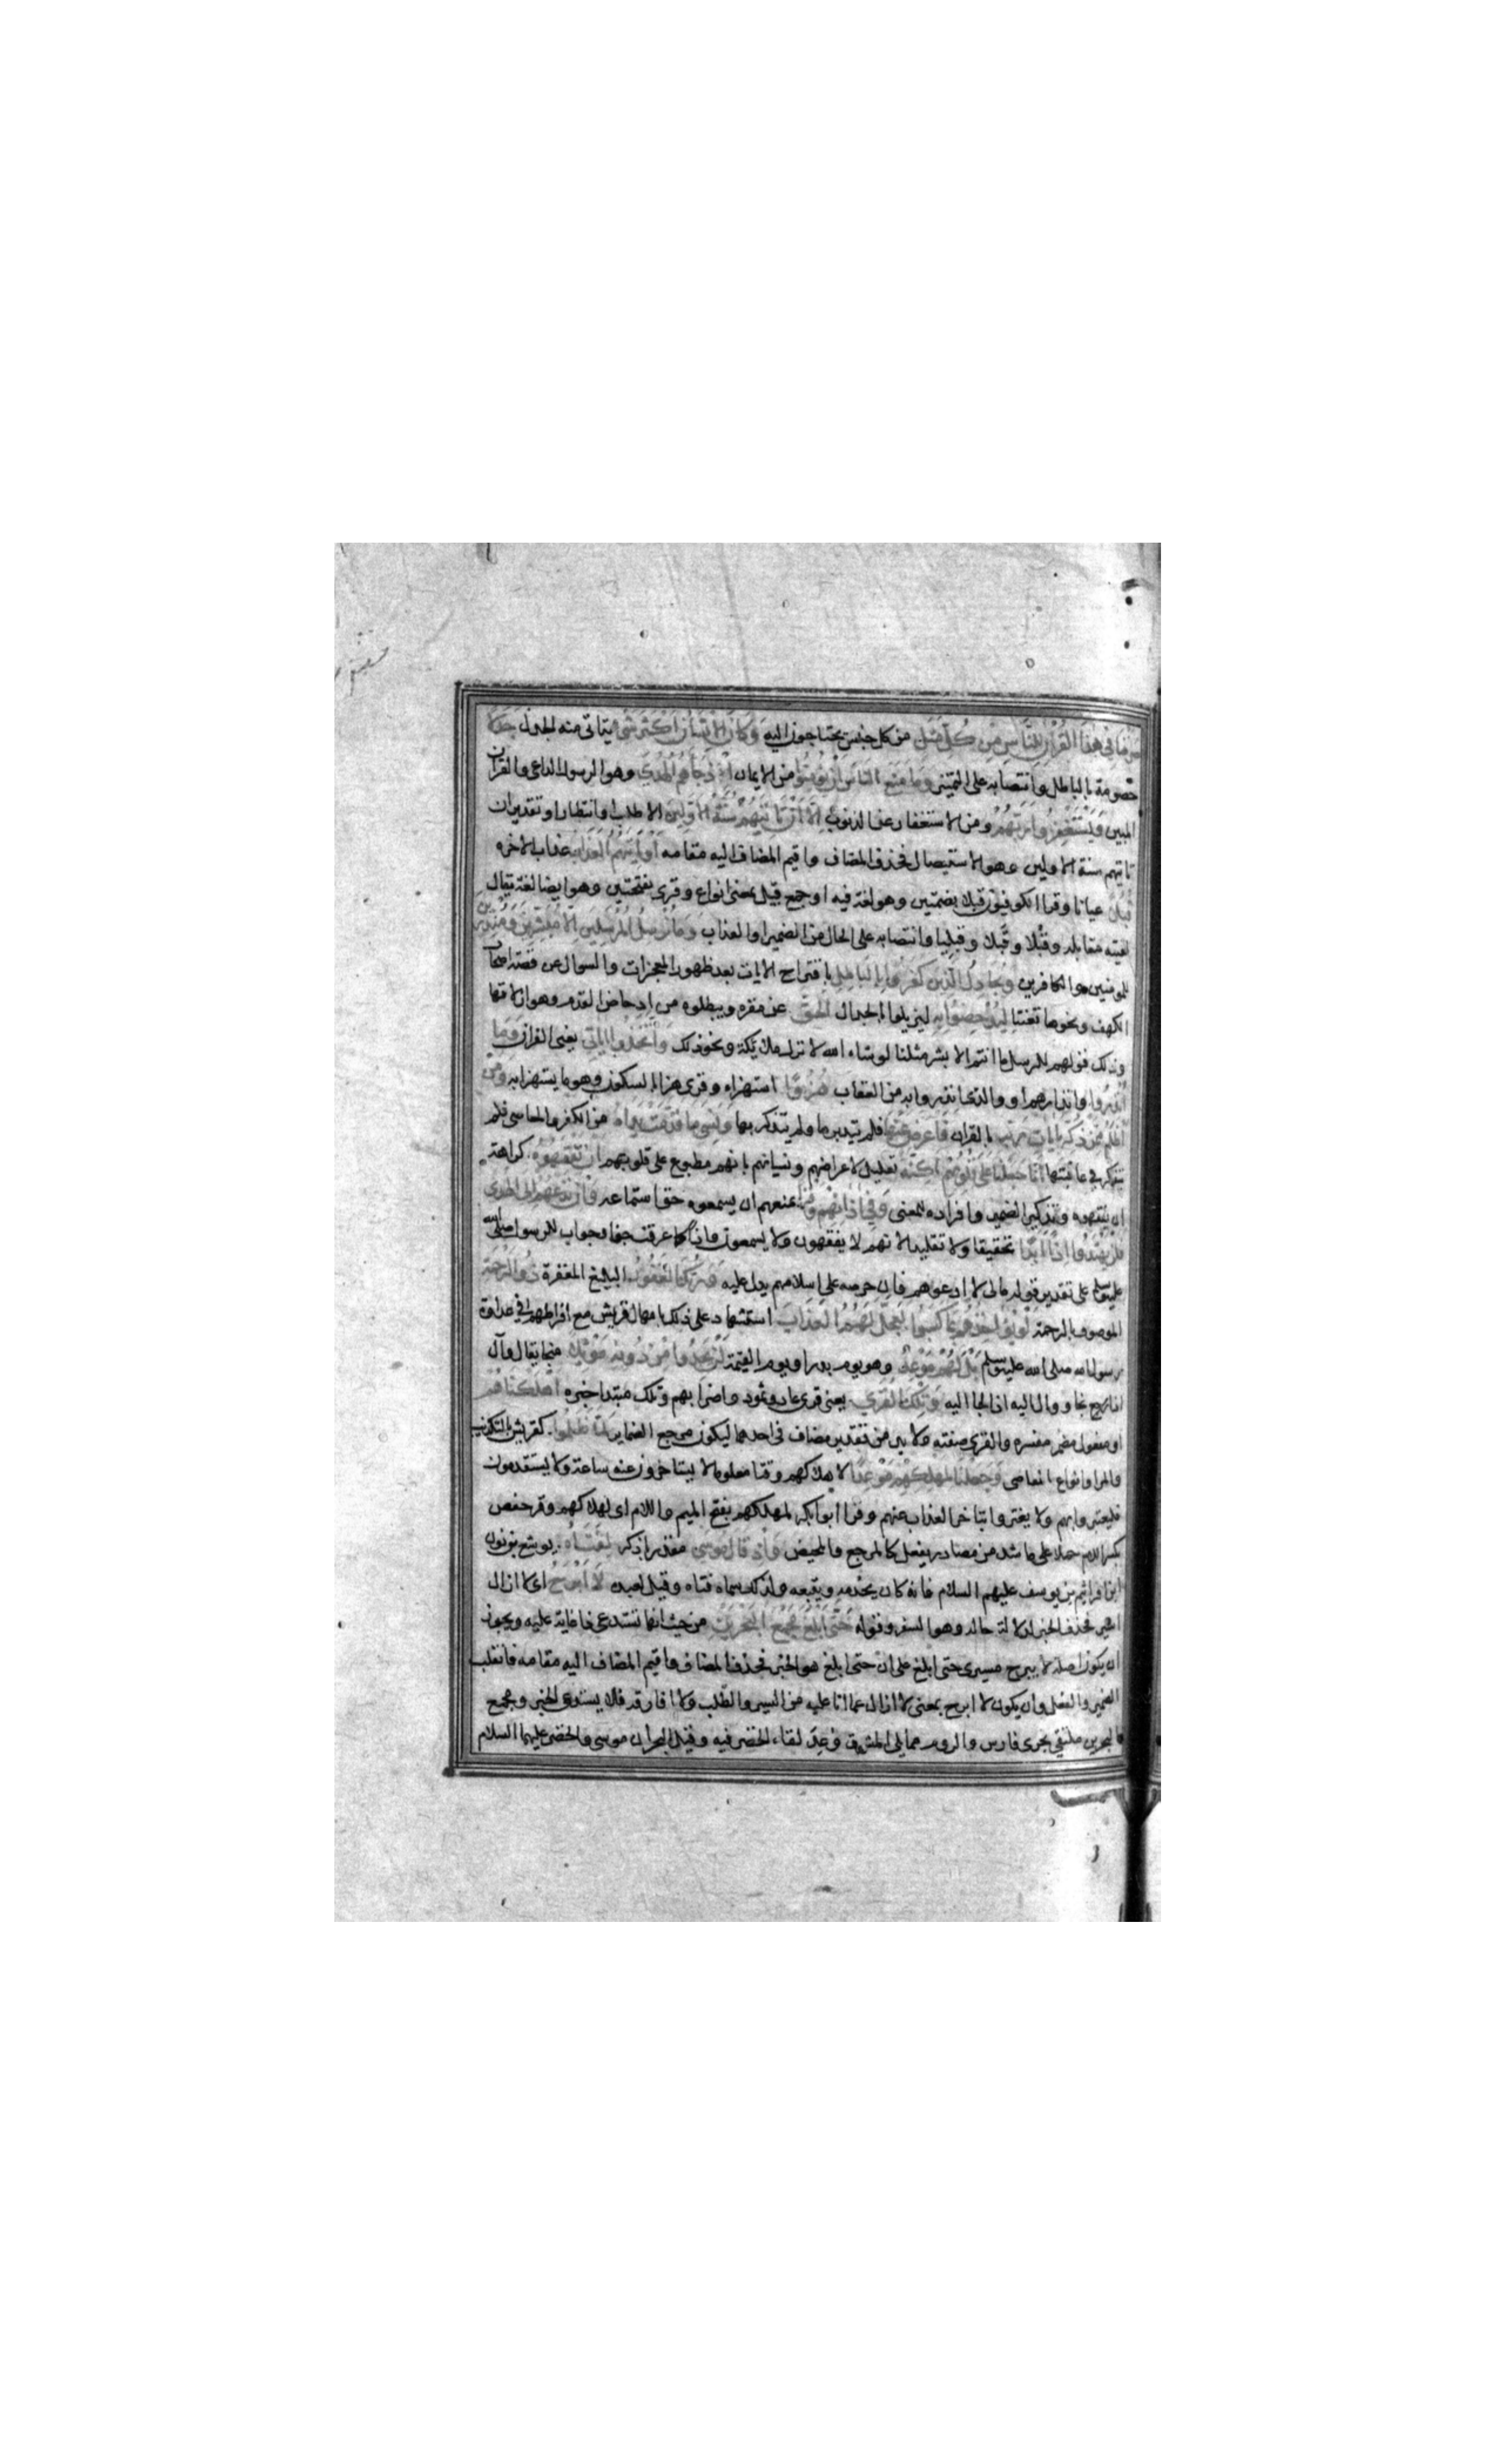 صرفنا في هذا القرآن للناس من كل مثل من كل جنس يحتاجون اليه وكان الانسان اكثر شي يتاتى منه الجدل جدلا
خصومة بالباطل وانتصابه على التمييز وما منع الناس ان يؤمنوا من الايمان اذ جاءهم الهدى وهو الرسول الداعي والقرآن
المبين ويستغفروا ربهم ومن الاستغفار عن الذنوب الا ان تاتيهم سنة الاولين الا طلب او انتظار او تقدير ان
تاتيهم سنة الاولين وهو الاستيصال فحذف المضاف واقيم المضاف اليه مقامه او ياتيهم العذاب عذاب الاخرة
قبلا عيانا وقرا الكوفيون قبلا بضمتين وهو لغة فيه او جمع قبيل بمعنى انواع وقرى بفتحتين وهو ايضا لغة يقال
لقيته مقابلة وقبلا وقبلا وقبليا وانتصابه على الحال من الضمير او العذاب وما نرسل المرسلين الا مبشرين ومنذرين
للمومنين والكافرين ويجادل الذين كفروا بالباطل باقتراح الايات بعد ظهور المعجزات والسوال عن قصة اصحاب
الكهف ونحوها تعنتا ليدحضوا به ليزيلوا بالجدال الحق عن مقره ويبطلوه من ادحاض القدم وهو ازلاقها
وذلك قولهم للرسل ما انتم الا بشر مثلنا لو شاء الله لانزل ملائكة ونحو ذلك واتخذوا اياتي يعنى القران وما
انذروا وانذارهم او والذي انذروا به من العقاب هزوا استهزاء وقرى هزا بالسكون وهو ما يستهزا به ومن
اظلم ممن ذكر بايات ربه بالقران فاعرض عنها فلم يتدبرها ولم يتذكر بها ونسي ما قدمت يداه من الكفر والمعاصي فلم
يتفكر في عاقبتها انا جعلنا على قلوبهم اكنة تعليل لاعراضهم ونسيانهم بانهم مطبوع على قلوبهم ان يفقهوه كراهة
ان يفقهوه وتذكير الضمير وافراده للمعنى وفي اذانهم وقرا يمنعهم ان يسمعوه حق استماعه وان تدعهم الى الهدى
فلن يهتدوا اذا ابدا تحقيقا ولا تقليدا لانهم لا يفقهون ولا يسمعون واذا كما عرفت جزاء وجواب للرسول صلى الله
عليه وسلم على تقدير قوله مالي لا ادعوهم فان حرصه على اسلامهم يدل عليه وربك الغفور البليغ المغفرة ذو الرحمة
الموصوف بالرحمة لو يؤاخذهم بما كسبوا لعجل لهم العذاب استشهاد على ذلك بامهال قريش مع افراطهم في عداوة
رسول الله صلى الله عليه وسلم بل لهم موعد وهو يوم بدر او يوم القيمة لن يجدوا من دونه موئلا منجا يقال وال
اذا نجا ووال اليه اذا لجا اليه وتلك القرى يعنى قرى عاد وثمود واضرابهم وتلك مبتدا خبره اهلكناهم
او مفعول مضمر مفسره والقرى صفته ولا بد من تقدير مضاف في احدهما ليكون مرجع الضماير لما ظلموا كقريش بالتكذيب
والمرا وانواع المعاصي وجعلنا لمهلكهم موعدا لاهلاكهم وقتا معلوما لا يستاخرون عنه ساعة ولا يستقدمون
فليعتبروا بهم ولا يغتروا بتاخر العذاب عنهم وقرا ابو بكر لمهلكهم بفتح الميم واللام اى لهلاكهم وقرا حفص
بكسر اللام حملا على ما شذ من مصادر يفعل كالمرجع والمحيض واذ قال موسى مقدر باذكر لفتاه يوشع بن نون
ابن افراثيم بن يوسف عليهم السلام فانه كان يخدمه ويتبعه ولذلك سماه فتاه وقيل لعبده لا ابرح اى لا ازال
اسير فحذف الخبر لدلالة حاله وهو السفر وقوله حتى ابلغ مجمع البحرين من حيث انها تستدعي ذا غاية عليه ويجوز
ان يكون اصله لا يبرح مسيرى حتى ابلغ على ان حتى ابلغ هو الخبر فحذف المضاف واقيم المضاف اليه مقامه فانقلب
الضمير والفعل وان يكون لا ابرح بمعنى لا ازال عما انا عليه من السير والطلب ولا افارقه فلا يستدعى الخبر ومجمع
البحرين ملتقى بحرى فارس والروم مما يلى المشرق وعد لقاء الخضر فيه وقيل البحران موسى والخضر عليهما السلام